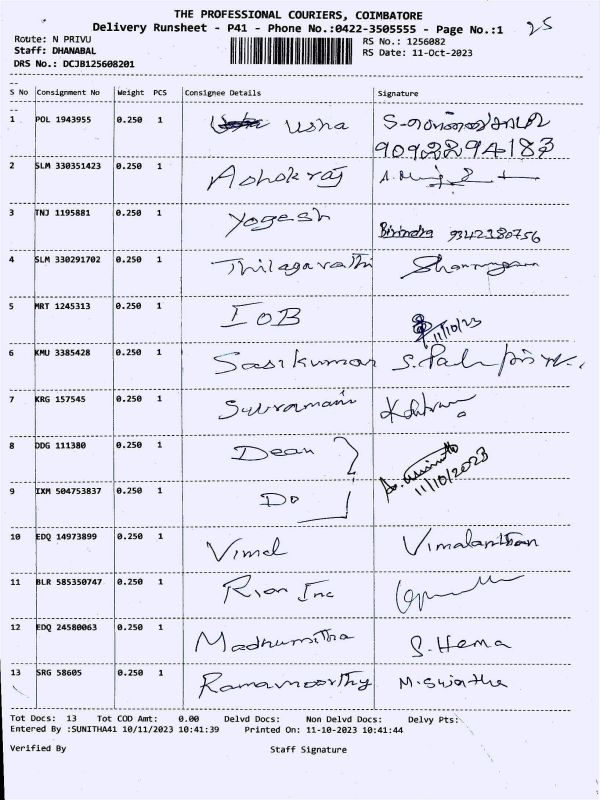 THE PROFESSIONAL COURIERS, COIMBATORE
Delivery Runsheet - P41 - Phone No.:0422-3505555 - Page No.:1 25
Route: N PRIVU RS No.: 1256082
Staff: DHANABAL RS Date: 11-Oct-2023
DRS No.: DCJB125608201
S No Consignment No Weight PCS Consignee Details Signature
1 POL 1943955 0.250 1 Usha
9092294183
2 SLM 330351423 0.250 1 Ashokraj
3 TNJ 1195881 0.250 1 Yogesh Birindha 9342380756
4 SLM 330291702 0.250 1 Thilagavathi Shanmugam
5 MRT 1245313 0.250 1 IOB 11/10/23
6 KMU 3385428 0.250 1 Sasikumar
7 KRG 157545 0.250 1 Subramani
8 DDG 111380 0.250 1 Dean
11/10/2023
9 IXM 504753837 0.250 1 Do
10 EDQ 14973899 0.250 1 Vimal Vimalanthan
11 BLR 585350747 0.250 1 Rion Inc
12 EDQ 24580063 0.250 1 Madhumitha S. Hema
13 SRG 58605 0.250 1 Ramamoorthy M. Swatha
Tot Docs: 13 Tot COD Amt: 0.00 Delvd Docs: Non Delvd Docs: Delvy Pts:
Entered By :SUNITHA41 10/11/2023 10:41:39 Printed On: 11-10-2023 10:41:44
Verified By Staff Signature